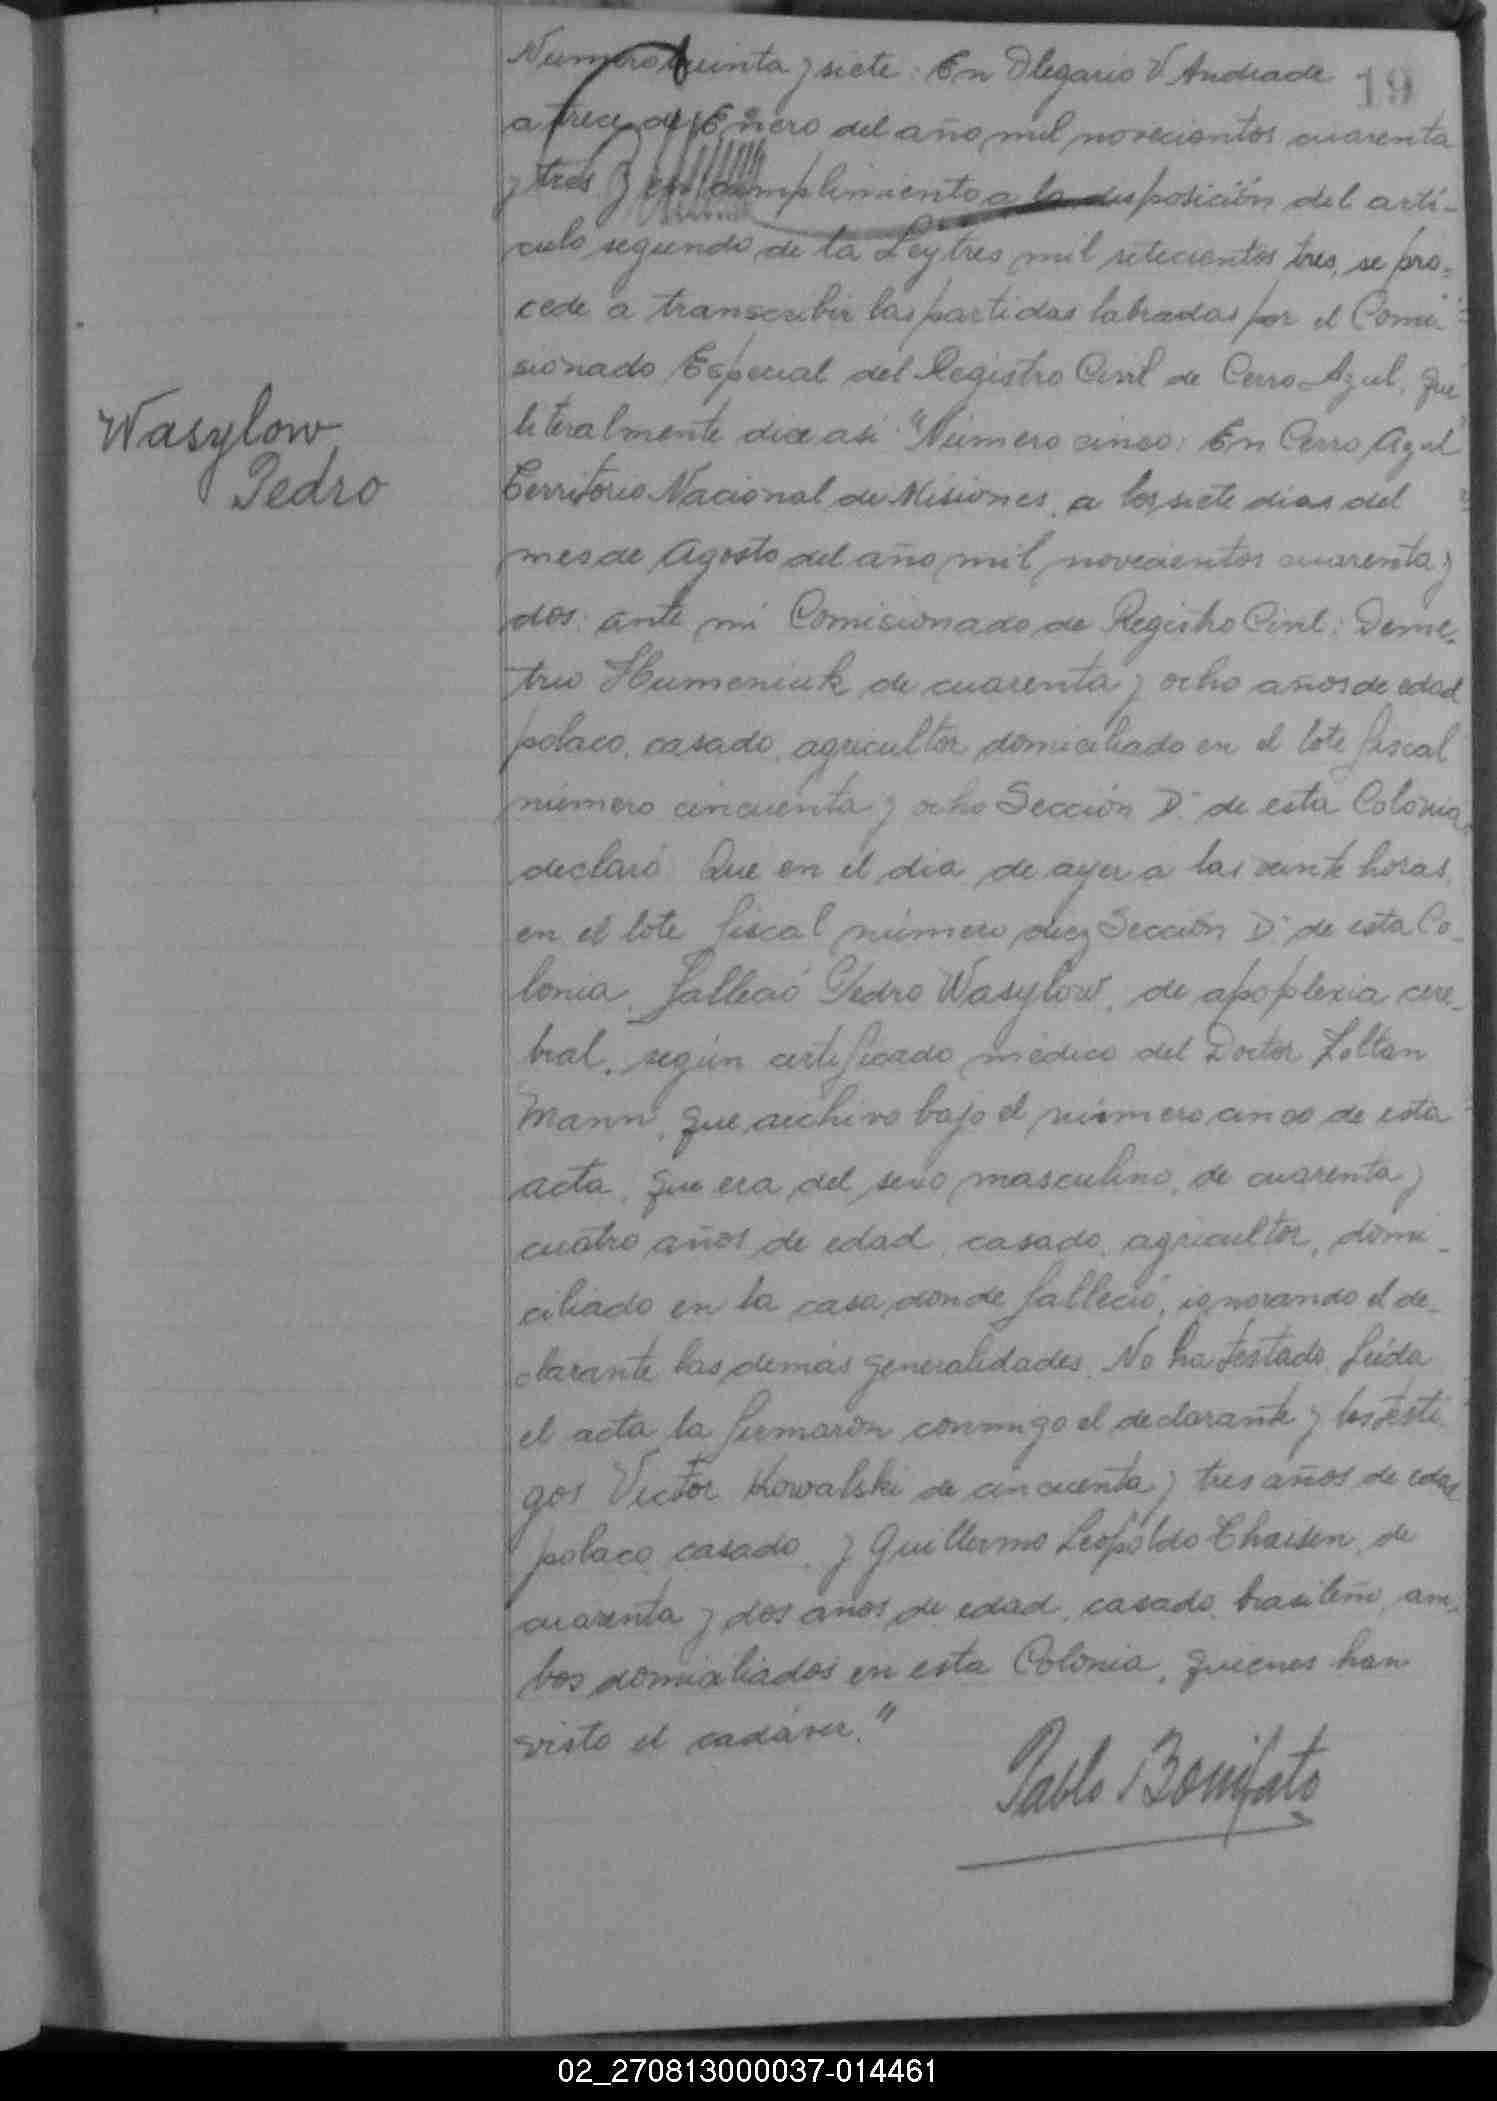 Número treinta y siete: En Olegario V Andrade
19
a trece de Enero del año mil novecientos cuarenta
y tres y en cumplimiento a la disposición del artí-
culo segundo de la Ley tres mil setecientos tres, se pro-
cede a transcribir las partidas labradas por el Comi-
sionado Especial del Registro Civil de Cerro Azul, que
literalmente dice asi "Número cinco: En Cerro Azul
Territorio Nacional de Misiones, a los siete días del
mes de Agosto del año mil novecientos cuarenta y
dos: ante mi Comisionado de Registro Civil: Deme-
trio Humeniuk de cuarenta y ocho años de edad
polaco, casado, agricultor domiciliado en el lote fiscal
número cincuenta y ocho Sección D. de esta Colonia,
declaró: Que en el día de ayer a las veinte horas,
en el lote fiscal número diez Sección D. de esta Co-
lonia, falleció Pedro Wasylow, de apoplexia cere-
bral, según certificado médico del Doctor Zoltan
Mann, que archivo bajo el número cinco de esta
acta, que era del sexo masculino, de cuarenta y
cuatro años de edad, casado, agricultor, domi-
ciliado en la casa donde falleció, ignorando el de-
clarante las demás generalidades. No ha testado. Leída
el acta la firmaron conmigo el declarante y los testi-
gos Victor Kowalski de cincuenta y tres años de edad
polaco, casado, y Guillermo Leopoldo de
cuarenta y dos años de edad, casado, brasileño, am-
bos domiciliados en esta Colonia, quienes han
visto el cadáver."
Pablo Bonifato
Wasylow
Pedro
02_270813000037-014461